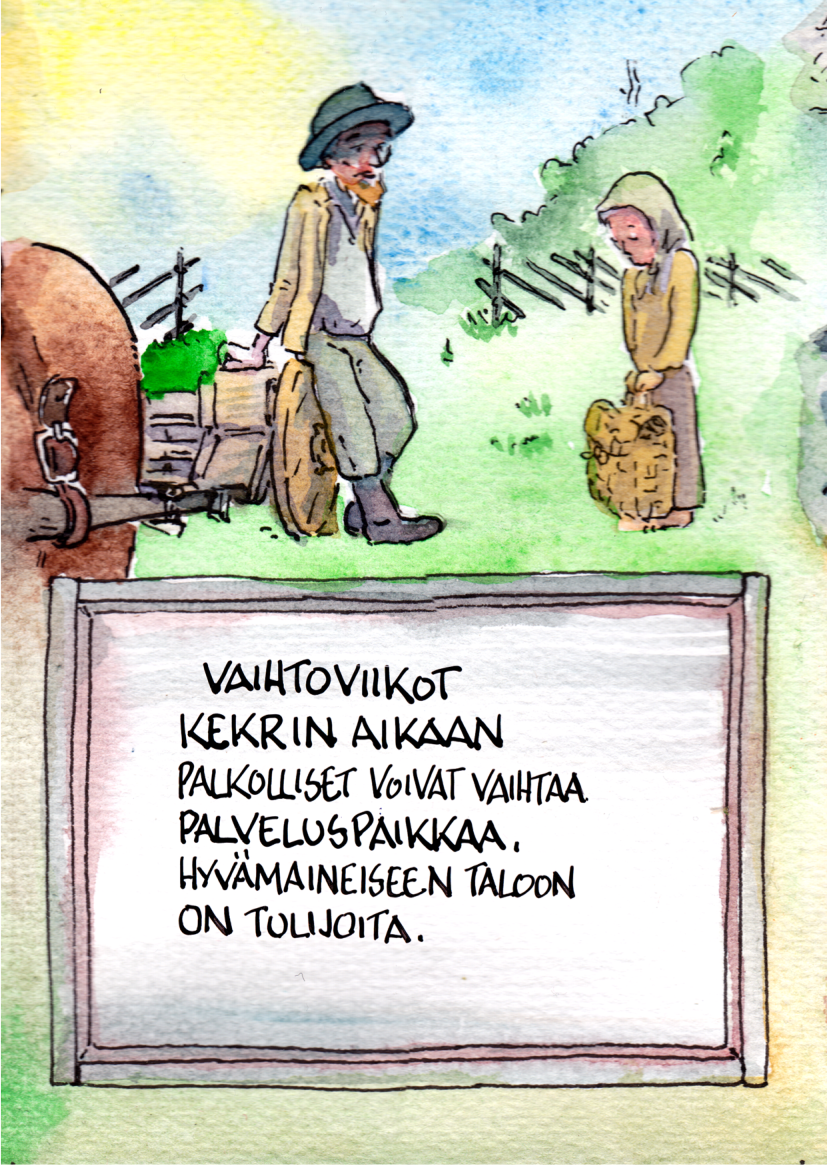 VAIHTOVIIKOT
KEKRIN AIKAAN
PALKOLLISET VOIVAT VAIHTAA
PALVELUSPAIKKAA.
HYVÄMAINEISEEN TALOON
ON TULIJOITA.